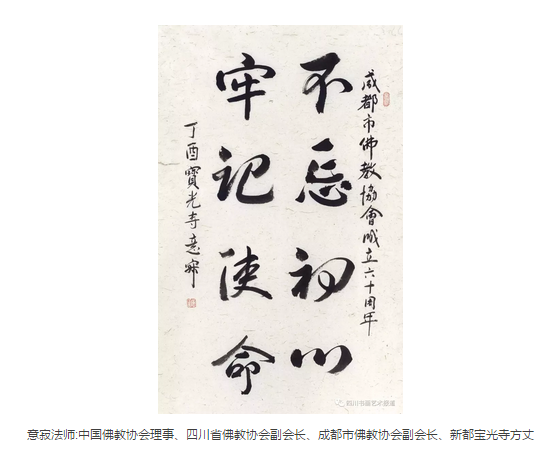 成都市佛教協會成立六十周年
不忘初心
牢记使命
丁酉寶光寺意寂
四川书画艺术园道
意寂法师:中国佛教协会理事、四川省佛教协会副会长、成都市佛教协会副会长、新都宝光寺方丈